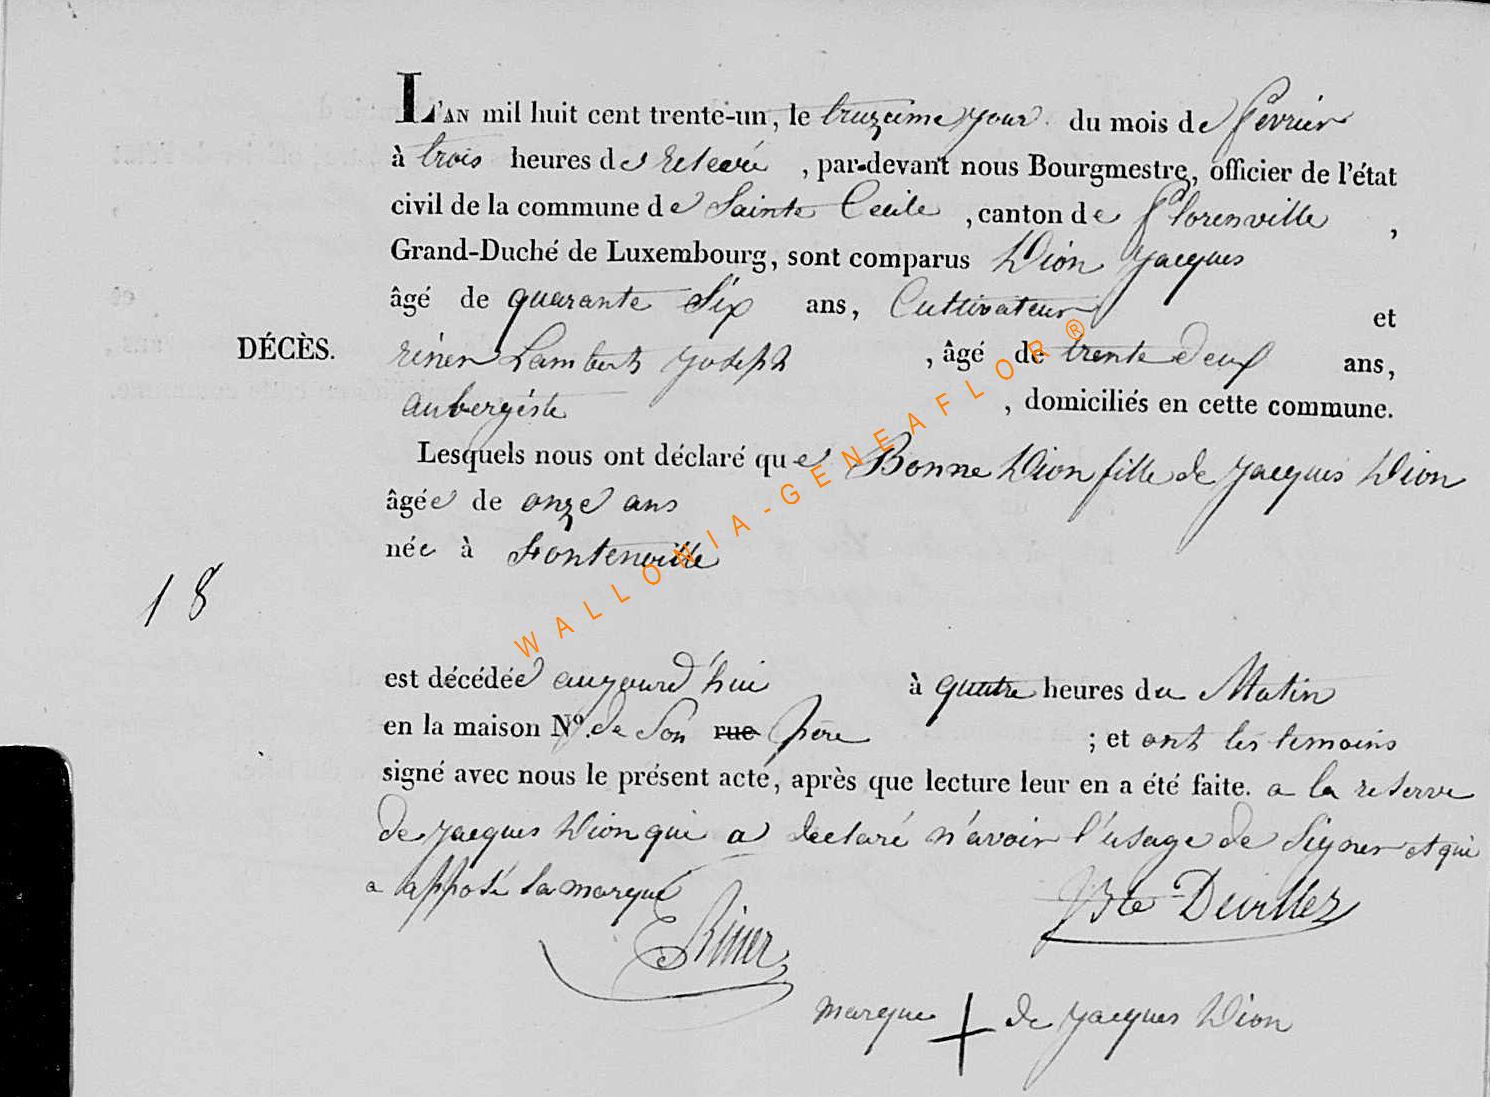 L'AN mil huit cent trente-un, le truzeime jour du mois de fevrier
à trois heures de relevé, par-devant nous Bourgmestre, officier de l'état
civil de la commune de Sainte Cecile, canton de florenville,
Grand-Duché de Luxembourg, sont comparus Dion jacques
âgé de quarante Six ans, Cultivateur et
DÉCÈS. riner Lambert joseph, âgé de trente deux ans,
aubergiste, domiciliés en cette commune.
Lesquels nous ont déclaré que Bonne Dion fille de jacques Dion
âgée de onze ans
née à fontenoille
18
est décédée aujourd'hui à quatre heures du Matin
en la maison N° de Son rue père ; et ont les temoins
signé avec nous le présent acte, après que lecture leur en a été faite. a la reserve
de jacques Dion qui a declaré n'avoir l'usage de Signer et qui
a apposé sa marque
Riner
Bte Devillez
marque de jacques Dion
WALLONIA-GENEAFLOR®